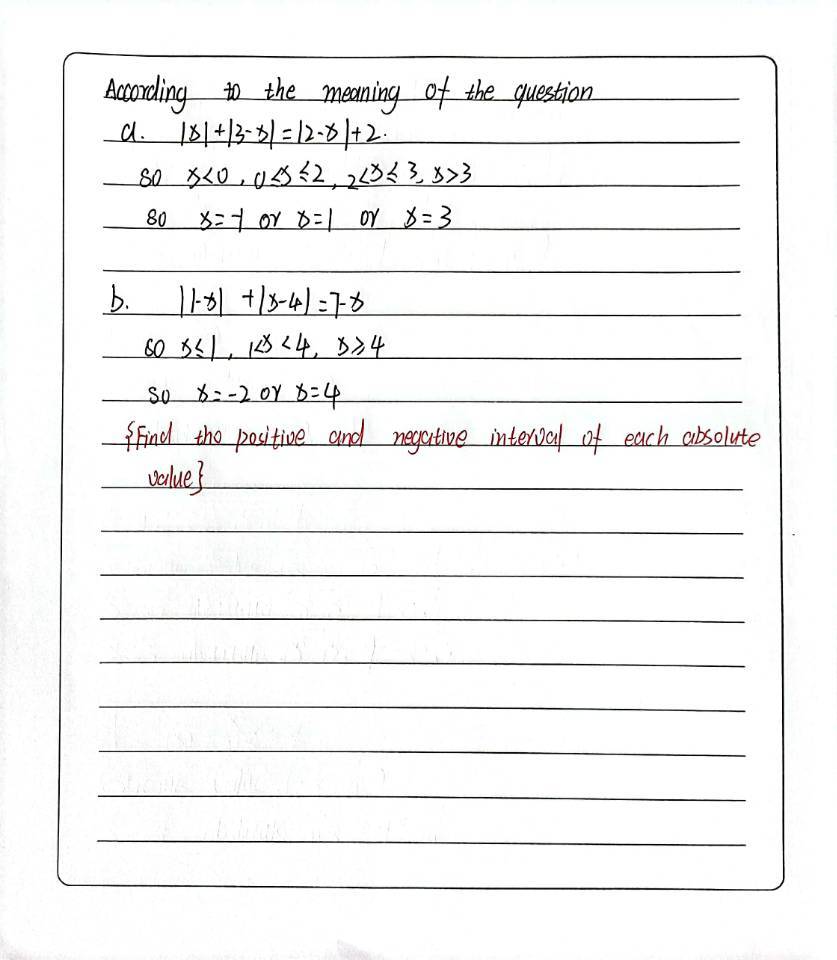 According to the meaning of the question
a. |x|+|3-x|=|2-x|+2.
so x<0, 0≤x≤2, 2<x≤3, x>3
so x=-1 or x=1 or x=3
b. |1-x| +|x-4|=7-x
so x≤1, 1<x<4, x≥4
so x=-2 or x=4
{Find the positive and negative interval of each absolute
value}